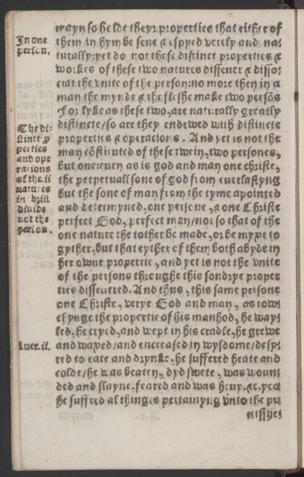 wayn so helde theyr properties that either of
In one person.
them in hym be sene & espyed verily and na⸗
turally: yet do not these distinct properties &
workes of these two natures disseuer & disso⸗
ciat the vnite of the person: no more then in a
man the mynde & the flesshe make two persōs
For lyke as these two, are naturally greatly
The di⸗
stinct p⸗
perties
and ope
rations
of the .ii.
natures
in christ
diuide
not the
person.
distincte / so are they endewed with distincte
properties & operations. And yet is not the
man cōstituted of these tweyn, two persones,
but one: euyn as is god and man one christe,
the perpetuall sone of god from euerlastyng
but the sone of man from the tyme apointed
and determyned, one persone, & one Christe
perfect God, perfect man / not so that of the
one nature the tother be made, or be myxte to
gyther, but that eyther of them both abyde in
her owne propertie, and yet is not the vnite
of the persons throughe this sondrye proper
ties disseuered. And thus, this same persone
one Christe, verye God and man, as tow⸗
chynge the propertie of his manhod, he way
led, he cryed, and wept in his cradle, he grewe
Luce. ii.
and waxed / and encreased in wysdome / desy⸗
red to eate and drynke, he suffered heate and
colde / he was beaten, dyd swete, was woun
ded and slayne. feared and was heuy. &c. yea
he suffred al thinges pertainyng vnto the pu
nisshe⸗